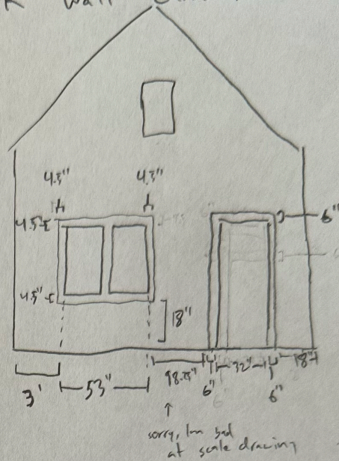 Wall
4.5" 4.5"
4.5" 6"
4.5"
18"
3' 53" 98.5" 6" 32" 6" 18"
↑
sorry, I'm bad
at scale drawing